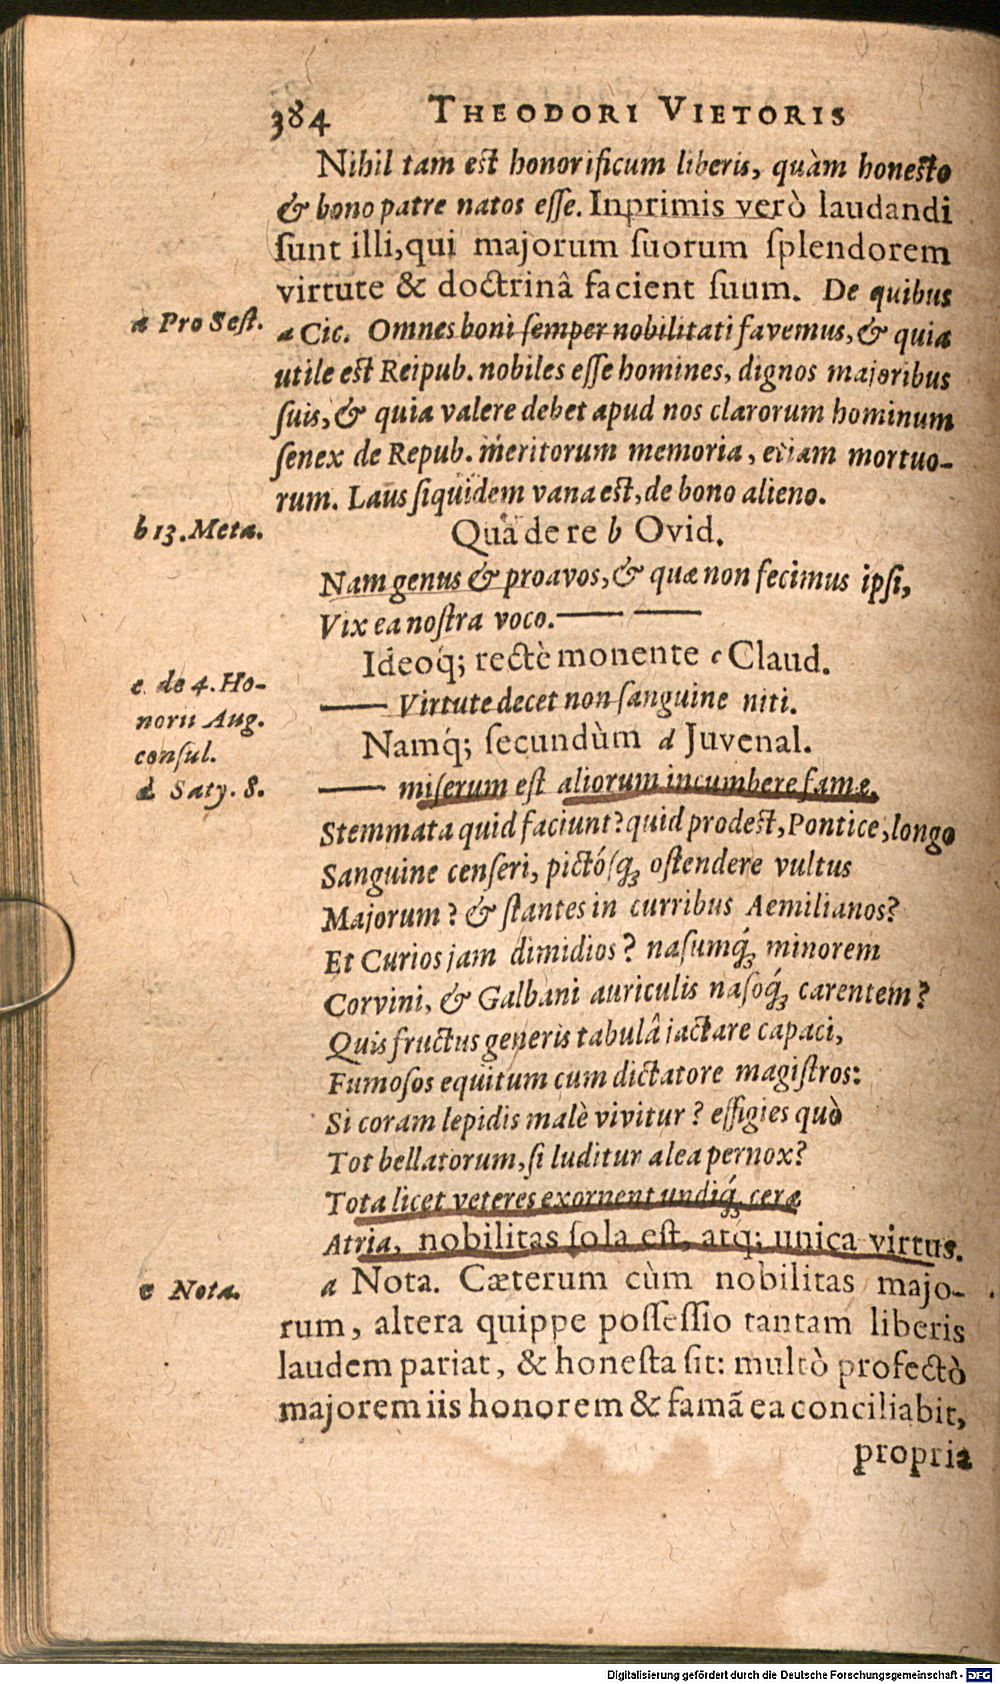 384 THEODORI VIETORIS
Nihil tam est honorificum liberis, quàm honesto
& bono patre natos esse. Inprimis verò laudandi
sunt illi, qui majorum suorum splendorem
virtute & doctrinâ facient suum. De quibus
a Pro Sest.
a Cic. Omnes boni semper nobilitati favemus, & quia
utile est Reipub. nobiles esse homines, dignos majoribus
suis, & quia valere debet apud nos clarorum hominum
senex de Repub. meritorum memoria, etiam mortuo-
rum. Laus siquidem vana est, de bono alieno.
b 13. Meta.
Quâ de re b Ovid.
Nam genus & proavos, & quæ non fecimus ipsi,
Vix ea nostra voco. — —
Ideoq́; rectè monente c Claud.
c de 4. Ho-
norii Aug.
consul.
— Virtute decet non sanguine niti.
Namq́; secundùm d Juvenal.
d Saty. 8.
— miserum est aliorum incumbere famæ.
Stemmata quid faciunt? quid prodest, Pontice, longo
Sanguine censeri, pictósq́ꝫ ostendere vultus
Majorum? & stantes in curribus Aemilianos?
Et Curios jam dimidios? nasumq́ꝫ minorem
Corvini, & Galbani auriculis nasoq́ꝫ carentem?
Quis fructus generis tabulâ jactare capaci,
Fumosos equitum cum dictatore magistros:
Si coram lepidis malè vivitur? effigies quò
Tot bellatorum, si luditur alea pernox?
Tota licet veteres exornent undiq́ꝫ ceræ
Atria, nobilitas sola est, atq; unica virtus.
e Nota.
a Nota. Cæterum cùm nobilitas majo-
rum, altera quippe possessio tantam liberis
laudem pariat, & honesta sit: multò profectò
majorem iis honorem & famã ea conciliabit,
propria
Digitalisierung gefördert durch die Deutsche Forschungsgemeinschaft - DFG